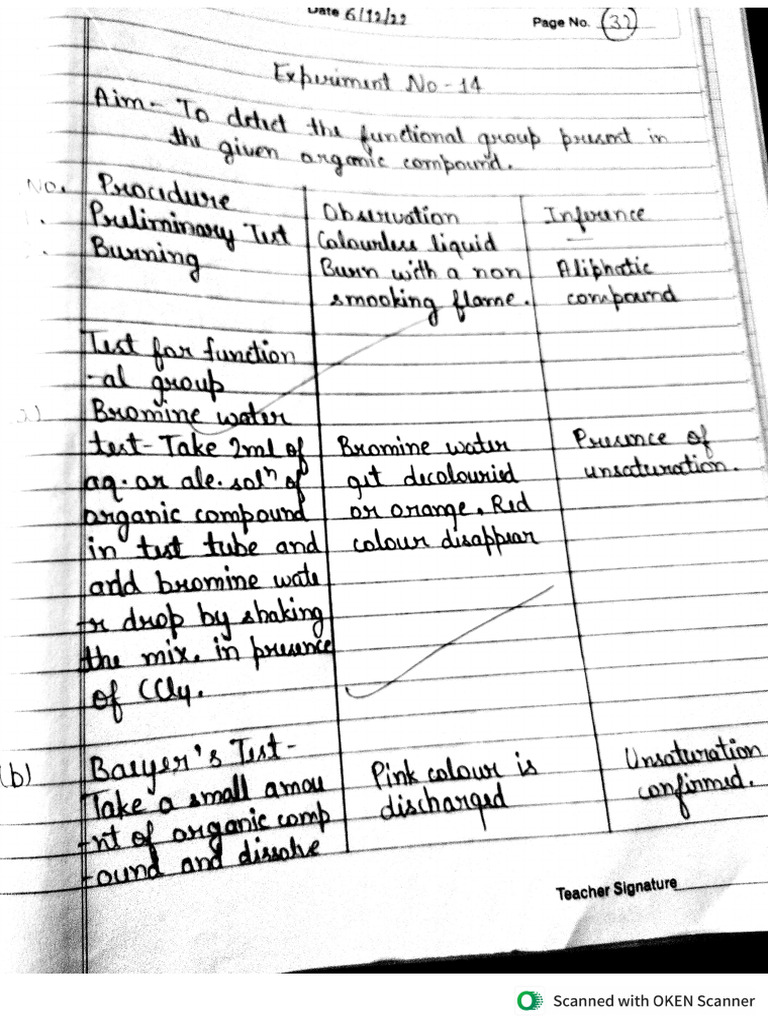 Date 6/12/22
Page No. 32
Experiment No - 14
Aim - To detect the functional group present in
the given organic compound.
No. Procedure Observation Inference
Preliminary Test Colourless liquid —
Burning Burn with a non Aliphatic
smooking flame. compound
Test for function
-al group
a) Bromine water
test - Take 2ml of Bromine water Presence of
aq. or ale. solⁿ of get decolouried unsaturation.
organic compound or orange, Red
in test tube and colour disappear
add bromine wate
-r drop by shaking
the mix. in presence
of CCl4.
(b) Baeyer's Test - Pink colour is Unsaturation
Take a small amou discharged confirmed.
-nt of organic comp
-ound and dissolve
Teacher Signature
Scanned with OKEN Scanner